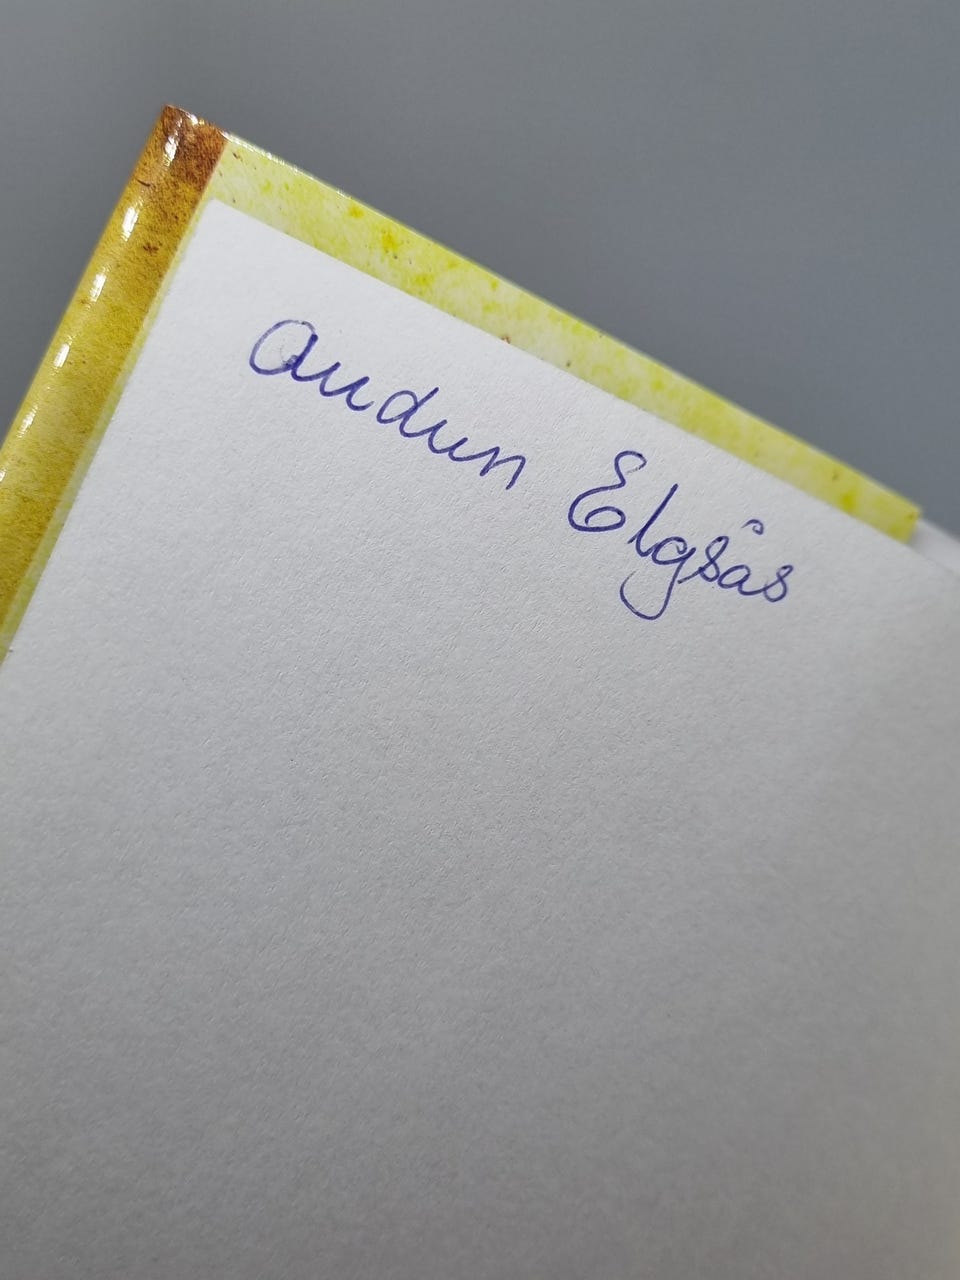 Audun Elgsås